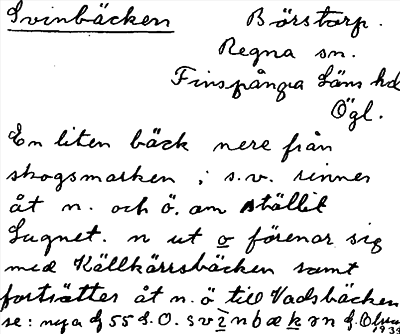 Svinbäcken Börstorp.
Regna sn.
Finspånga Läns hd
Ögl.
En liten bäck nere från
skogsmarken i s.v. rinner
åt n. och ö. om stället
Lugnet. n ut o förenar sig
med Källkärrsbäcken samt
fortsätter åt n. ö till Vadsbäcken
se: 55 S.O. svinbækən
1934